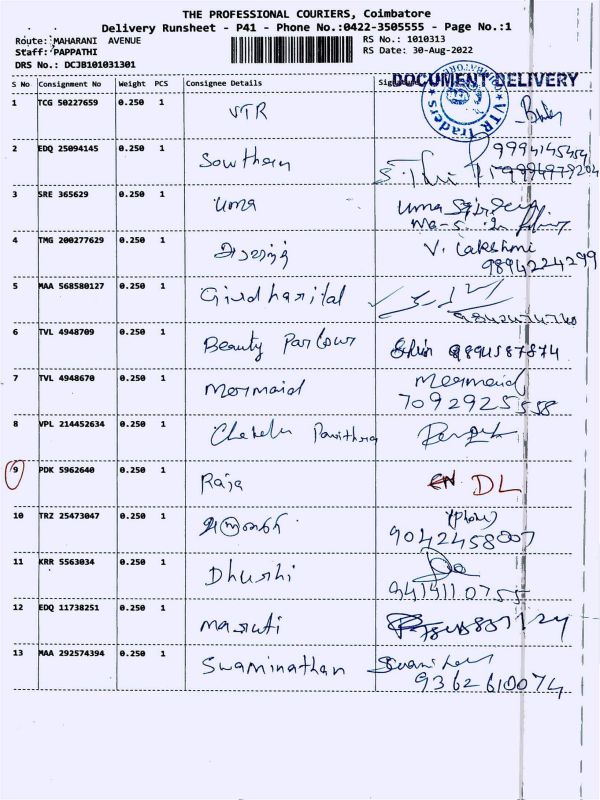 THE PROFESSIONAL COURIERS, Coimbatore
Delivery Runsheet - P41 - Phone No.:0422-3505555 - Page No.:1
Route: MAHARANI AVENUE
RS No.: 1010313
Staff: PAPPATHI
RS Date: 30-Aug-2022
DRS No.: DCJB101031301
S No Consignment No Weight PCS Consignee Details Signature
DOCUMENT DELIVERY
VTR Traders
1 TCG 50227659 0.250 1 VTR
2 EDQ 25094145 0.250 1 Sowthern 9994145454
3 SRE 365629 0.250 1 uma uma
4 TMG 200277629 0.250 1 V. Lakshmi
9894224299
5 MAA 568580127 0.250 1
6 TVL 4948709 0.250 1 Beauty Parlour
7 TVL 4948670 0.250 1 Mermaid Mermaid
7092925558
8 VPL 214452634 0.250 1
9 PDK 5962640 0.250 1 Raja DL
10 TRZ 25473047 0.250 1 (Phone)
9042458007
11 KRR 5563034 0.250 1 Dhurshi
12 EDQ 11738251 0.250 1 Maruti
13 MAA 292574394 0.250 1 Swaminathan
9362610074